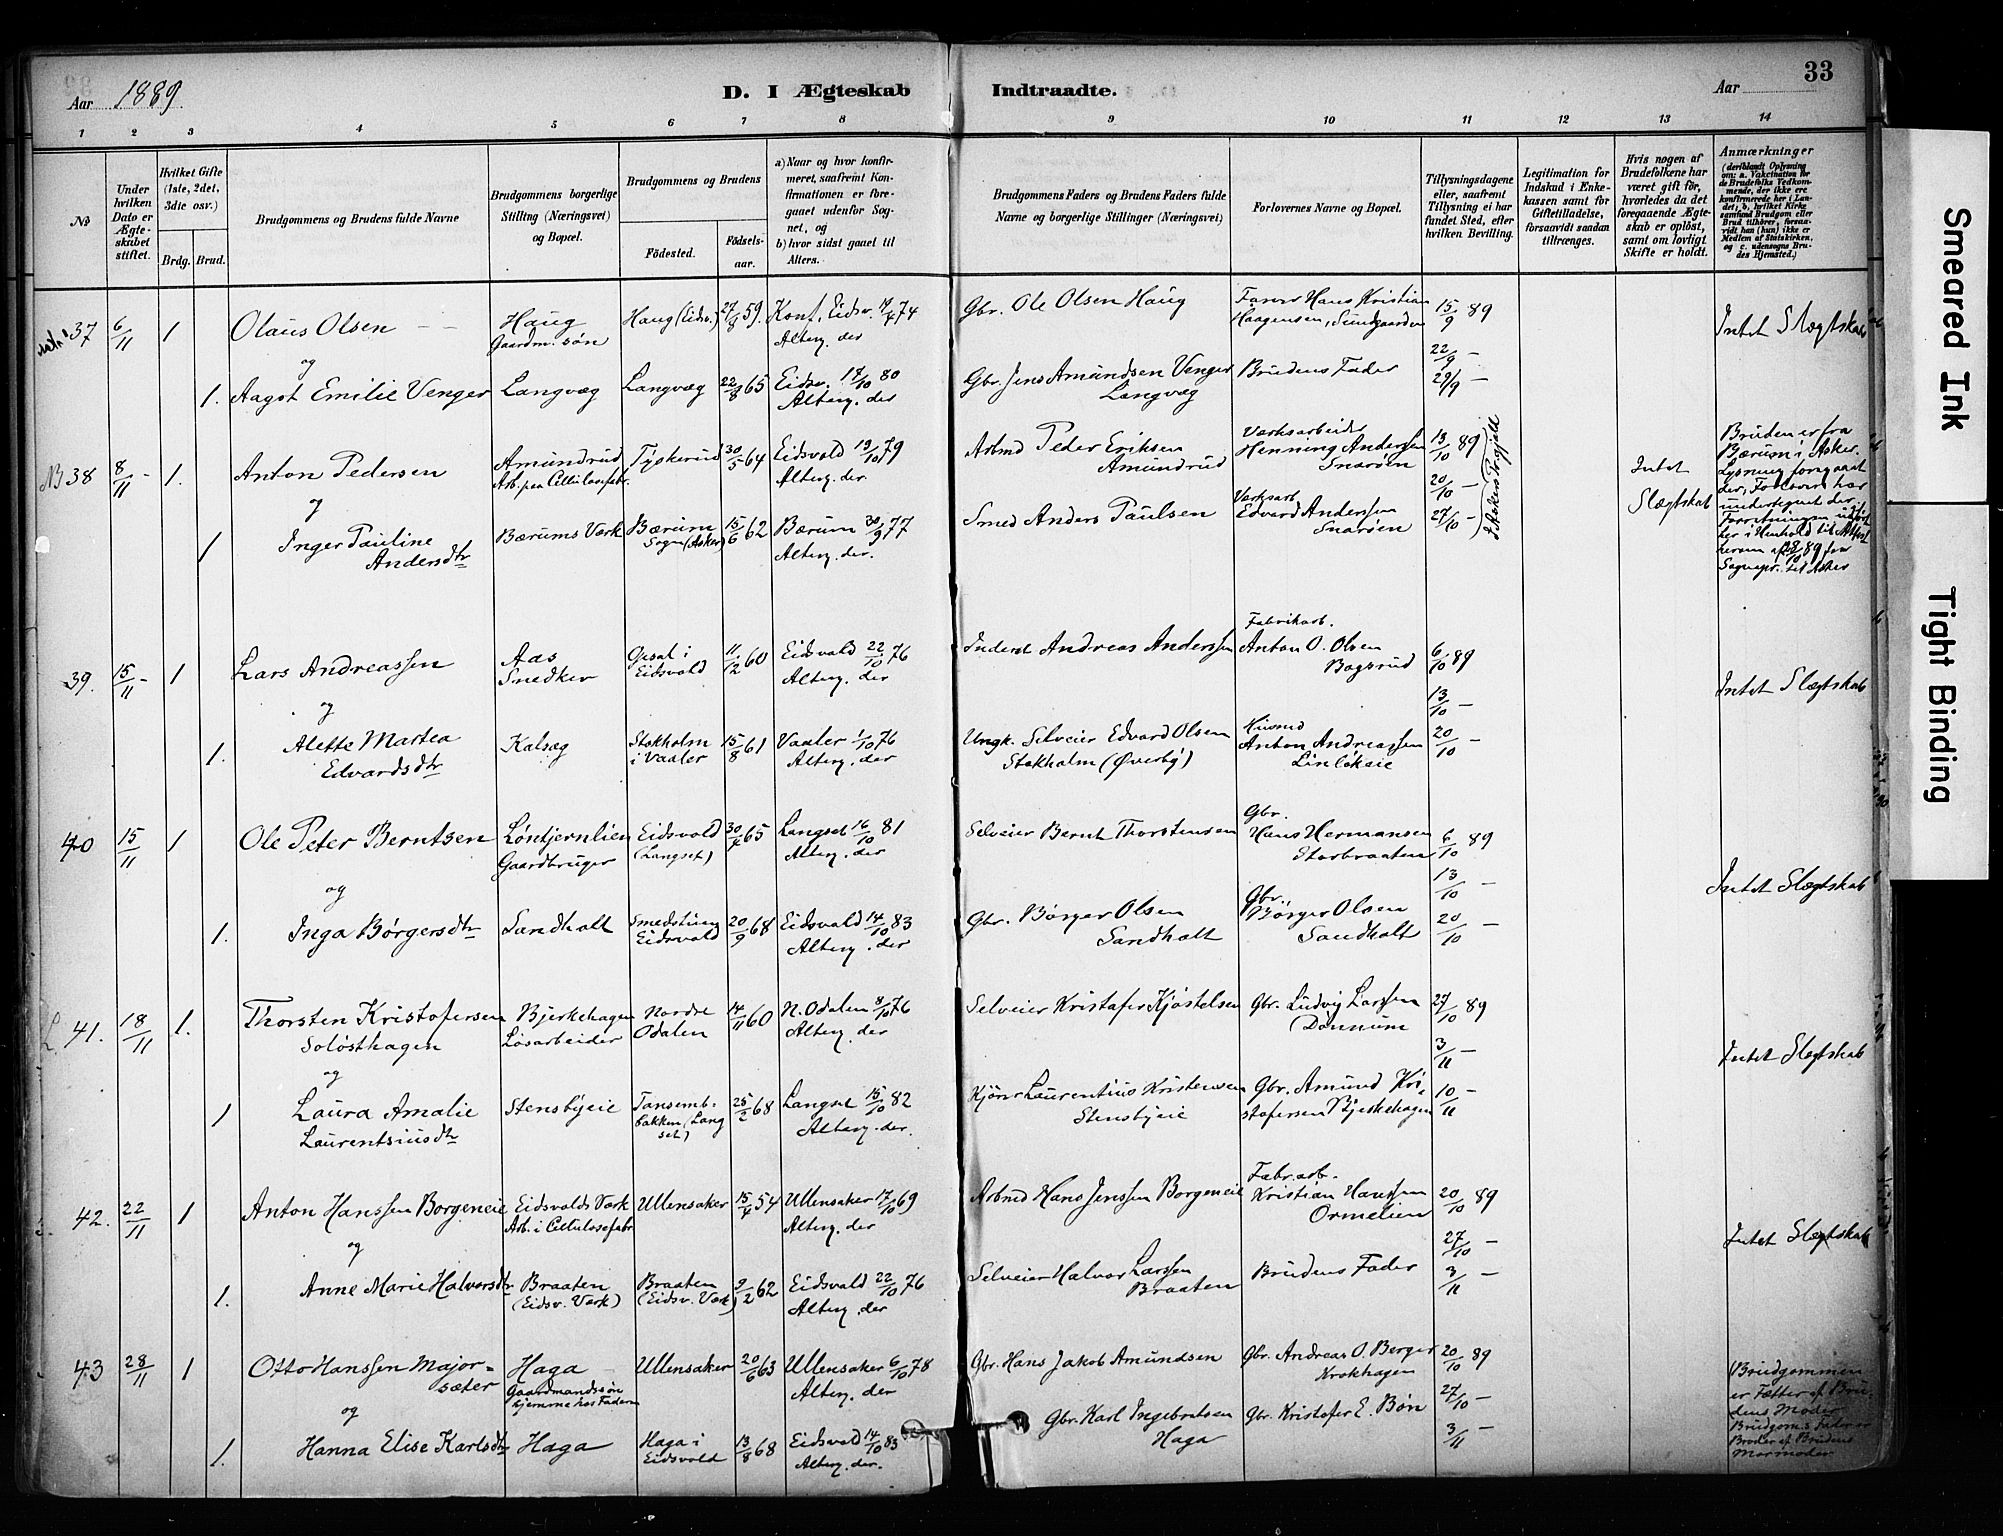 Aar 1889. D. I Ægteskab Indtraadte. Aar 33
1 2 3 4 5 6 7 8 9 10 11 12 13 14
No
Under hvilken Dato er Ægteskabet stiftet.
Hvilket Gifte (1ste, 2det, 3die osv.)
Brdg. Brud.
Brudgommens og Brudens fulde Navne
Brudgommens borgerlige Stilling (Næringsvei) og Bopæl.
Brudgommens og Brudens
Födested.
Födsels-aar.
a) Naar og hvor konfirmeret, saafremt Konfirmationen er foregaaet udenfor Sognet, og
b) hvor sidst gaaet til Alters.
Brudgommens Faders og Brudens Faders fulde Navne og borgerlige Stillinger (Næringsvei)
Forlovernes Navne og Bopæl.
Tillysningsdagene eller, saafremt Tillysning ei har fundet Sted, efter hvilken Bevilling.
Legitimation for Indskud i Enkekassen samt for Giftetilladelse, forsaavidt saadan tiltrænges.
Hvis nogen af Brudefolkene har været gift för, hvorledes da det foregaaende Ægteskab er oplöst, samt om lovligt Skifte er holdt.
Anmærkninger (deriblandt Oplysning om: a. Vakcination for de Brudefolks Vedkommende, der ikke ere konfirmerede her i Landet; b. hvilket Kirkesamfund Brudgom eller Brud tilhörer, forsaavidt han (hun) ikke er Medlem af Statskirken, og c. udensogns Brudes Hjemsted.)
37 6/11 1 Olaus Olsen Haug Gaardm. søn Haug (Eidsv.) 27/8 59. Konf. Eidsv. 74 Alterg. der Gbr. Ole Olsen Haug Hans Kristian Haagensen, Sundgaarden 15/9 89 Intet Slægtskab
og
1. Aagot Emilie Venger Langvæg Langvæg 22/8 65 Eidsv. 80 Alterg. der Gbr. Jens Amundsen Venger Langvæg Brudens Fader 22/9 – 29/9 –
NB 38 8/11 – 1. Anton Pedersen Amundrud Arb. paa Cellulosefabr. Tyskerud 30/5 64 Eidsvold 19/10 79 Alterg. der. Arbmd Peder Eriksen Amundrud Værksarbeider Henning Anderssen Snarøen 13/10 89 20/10 – Intet Slægtskab
og
1 Inger Pauline Andersdtr Bærums Værk Bærum Sogn (Asker) 15/6 62 Bærum 30/9 77 Alterg. der. Smed Anders Paulsen Værksarb. Edvard Anderssen Snarøen 27/10 –
Bruden er fra
Bærum i Asker.
Lysning foregaaet
der, Forlovere har
undertegnet der.
Forretningen
her i Henhold til Attest
herom af 28/10 89 fra
Sognepr. til Asker
39. 15/11 – 1 Lars Andreassen Aas Snedker i Eidsvold 11/12 60 Eidsvold 22/10 76 Alterg. der Inderst Andreas Anderssen Fabrikarb. Anton O. Olsen Bogsrud 6/10 89 13/10 – Intet Slægtskab
og
1. Alette Martea Edvardsdtr Kalsæg Stokholm i Vaaler 15/8 61 Vaaler 1/10 76 Alterg. der Ungk. Selveier Edvard Olsen Stokholm (Øverby) Husmd Anton Andreassen Linløkeie 20/10 –
40 15/11 1 Ole Peter Berntsen Løntjernlien Gaardbruger Eidsvold (Langset) 30/4 65 Langset 16/10 81 Alterg. der Selveier Bernt Thorstensen Gbr. Hans Hermansen Storbraaten 6/10 89 13/10 – Intet Slægtskab
og
1. Inga Børgersdtr Sandholt Smedstuen Eidsvold 20/9 68 Eidsvold 14/10 83 Alterg. der Gbr. Børger Olsen Sandholt Gbr. Børger Olsen Sandholt 20/10 –
41. 18/11 1. Thorsten Kristofersen Soløsthagen Bjerkehagen Løsarbeider Nordre Odalen 14/11 60 N. Odalen 8/10 76 Alterg. der Selveier Kristofer Kjøstelsen Gbr. Ludvig Larssen Dønnum 27/10 89 3/11 – Intet Slægtskab
og
1 Laura Amalie Laurentsiusdtr Stensbyeie Tansembbakken (Langset) 25/2 68 Langset 15/10 82 Alterg. der. Kjører Laurentius Kristensen Stensbyeie Gbr. Amund Kristofersen Bjerkehagen 10/11 –
42. 22/11 1 Anton Hanssen Borgeneie Eidsvolds Værk Arb. i Cellulosefabr. Ullensaker 15/4 54 Ullensaker 17/10 69 Alterg. der Arbmd Hans Jenssen Borgeneie Fabr. arb. Kristian Hanssen Ormelien 20/10 89 27/10 – Intet Slægtskab
og
1. Anne Marie Halvorsdtr Braaten (Eidsv. Værk) Braaten (Eidsv. Værk) 9/2 62 Eidsvold 22/10 76 Alterg. der Selveier Halvor Larssen Braaten Brudens Fader 3/11 –
43 28/11 1 Otto Hanssen Majorsæter Haga Gaardmandssøn hjemme hos Faderen Ullensaker 20/6 63 Ullensaker 6/10 78 Alterg. der. Gbr. Hans Jakob Amundsen Gbr. Andreas O. Berger Krokhagen 20/10 89 27/10 –
og
1. Hanna Elise Karlsdtr Haga Haga i Eidsvold 13/8 68 Eidsvold 14/10 83 Alterg. der. Gbr. Karl Ingebretsen Haga Gbr. Kristofer E. Bøn 3/11 –
Brudgommen
er Fætter af Brudens Moder
Brudgoms Fader er
Broder af Brudens
Mormoder
Smeared Ink
Tight Binding